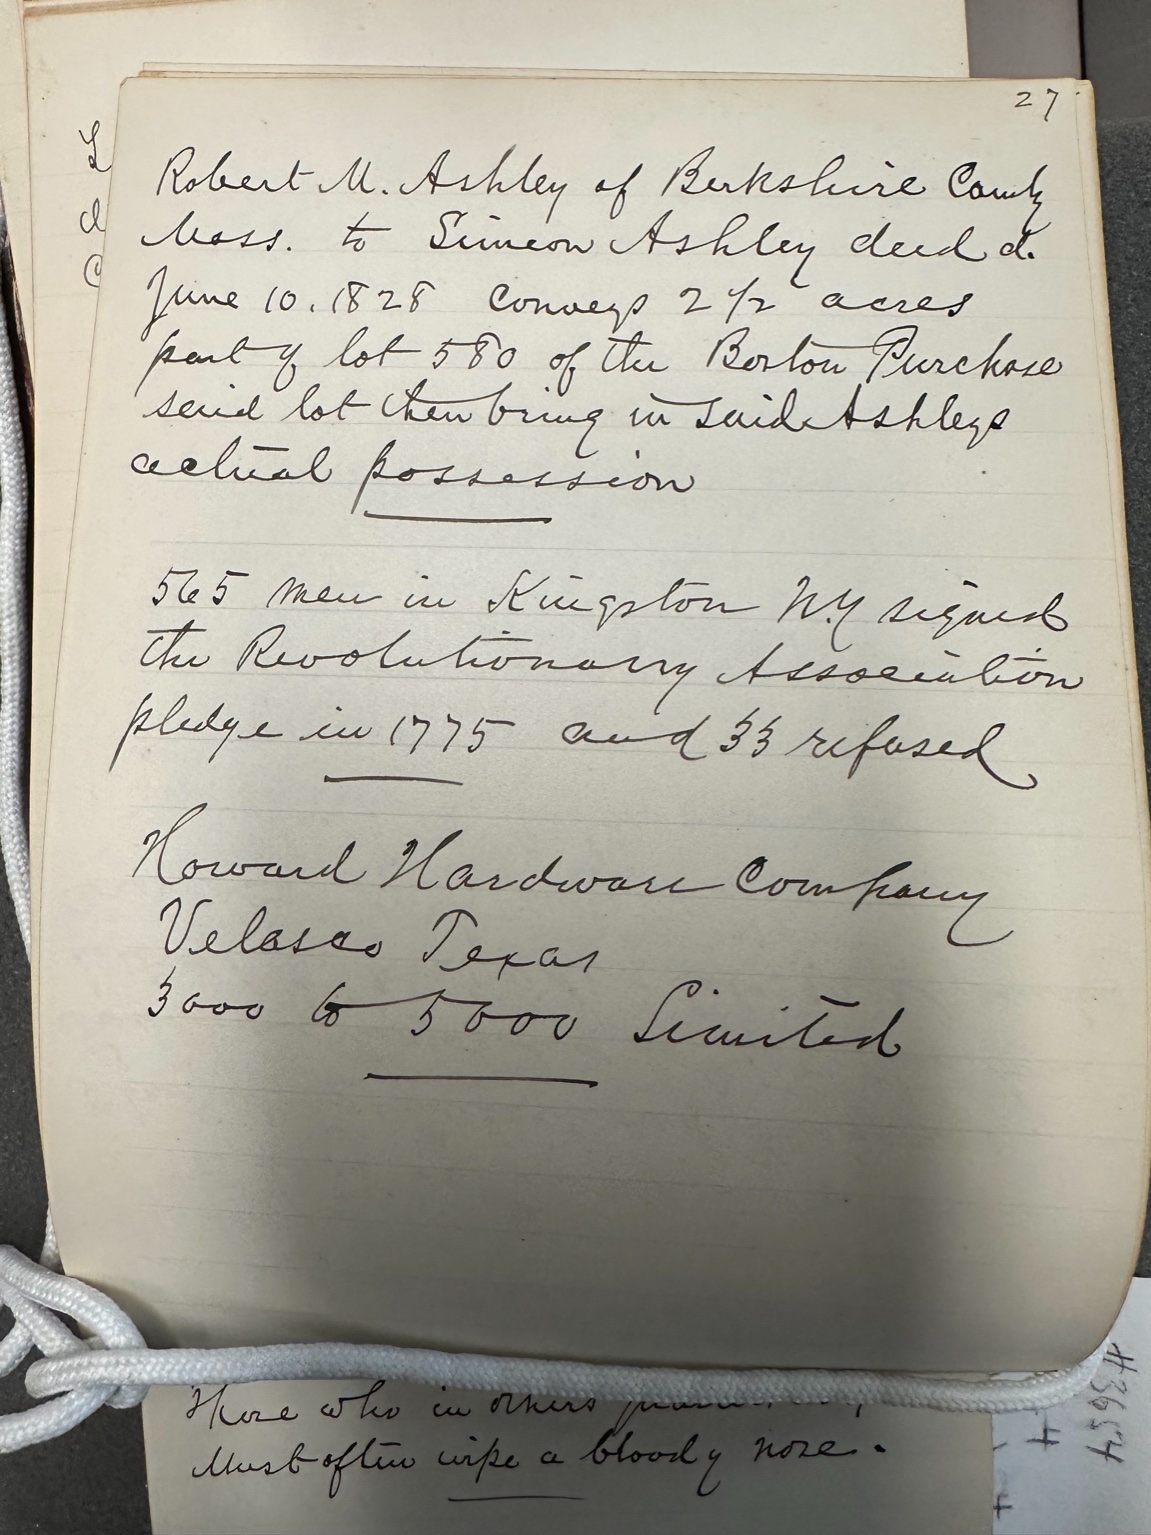 27
Robert M. Ashley of Berkshire County
Mass. to Simeon Ashley deed d.
June 10. 1828 conveys 2 1/2 acres
part of lot 580 of the Boston Purchase
said lot then bring in said Ashleys
actual possession
565 men in Kingston N.Y signed
the Revolutionary Association
pledge in 1775 and 33 refused
Howard Hardware Company
Velasco Texas
3000 to 5000 Limited
Those who in others
Must often wipe a bloody nose.